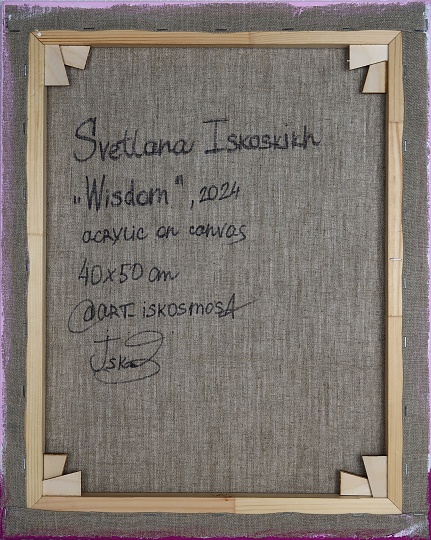 Svetlana Iskoskikh
„Wisdom", 2024
acrylic on canvas
40x50 cm
@art_iskosmosA